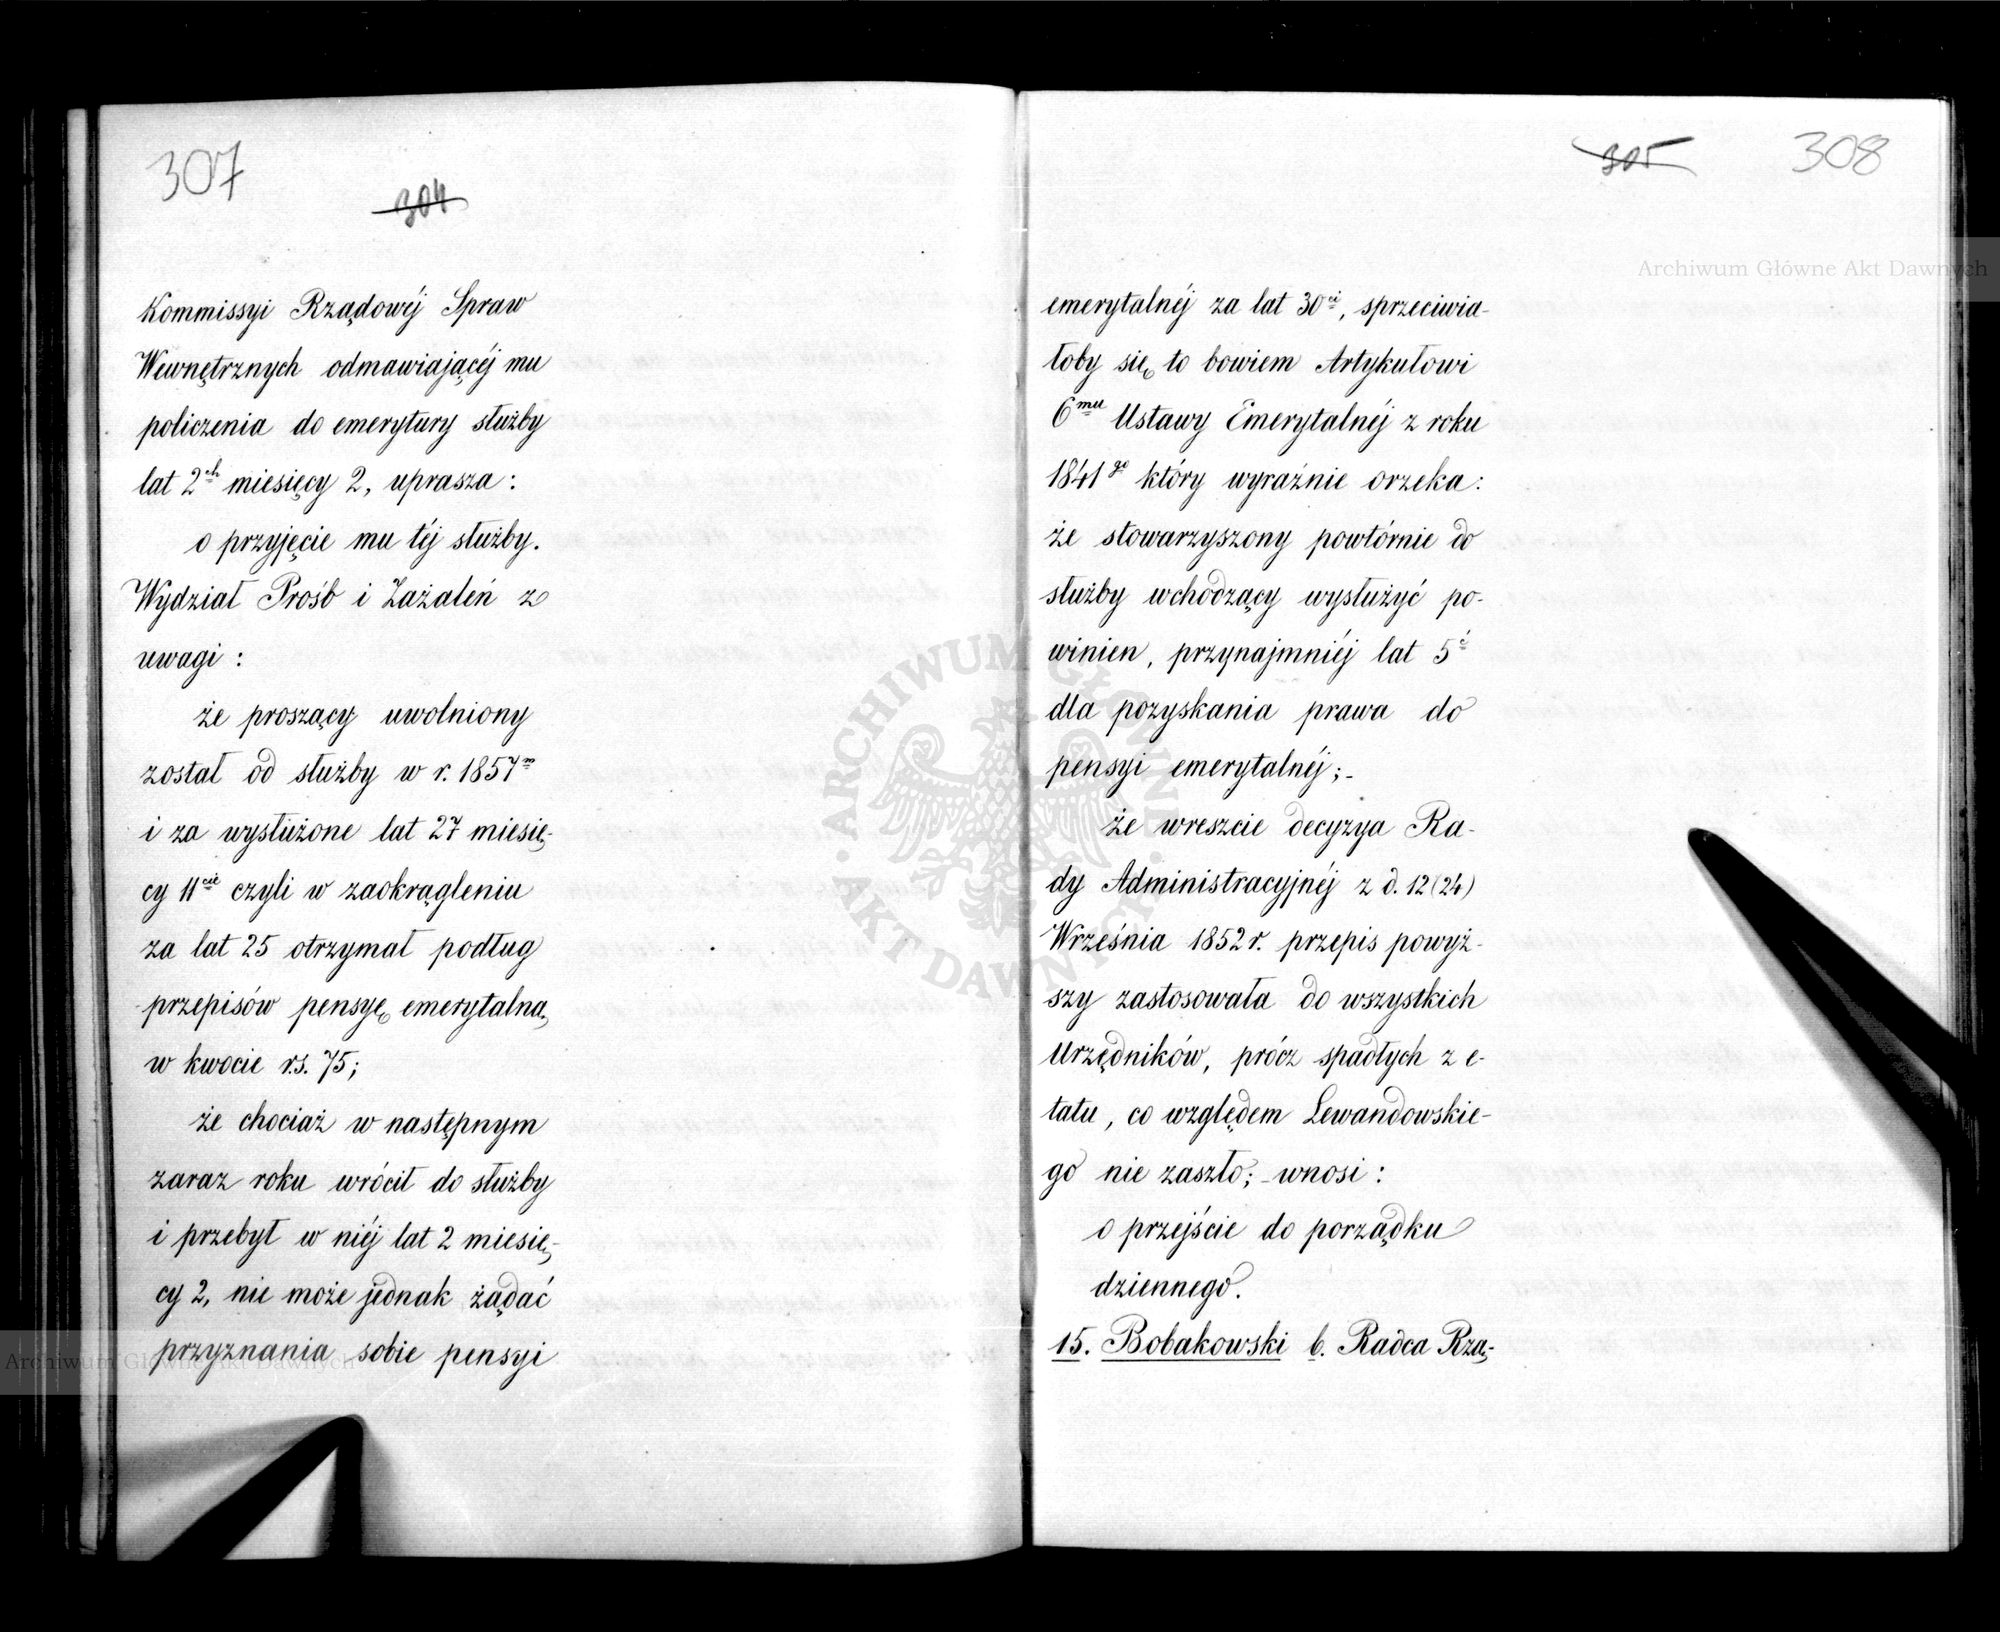 307
304
Kommissyi Rządowéj Spraw
Wewnętrznych odmawiającéj mu
policzenia do emerytury służby
lat 2ch miesięcy 2, uprasza:
o przyjęcie mu téj służby.
Wydział Prośb i Zażaleń z
uwagi:
że proszący uwolniony
został od służby w r. 1857m
i za wysłużone lat 27 miesię-
cy 11cie czyli w zaokrągleniu
za lat 25 otrzymał podług
przepisów pensyę emerytalną
w kwocie rs. 75;
że chociaż w następnym
zaraz roku wrócił do służby
i przebył w niéj lat 2 miesię-
cy 2, nie może jednak żądać
przyznania sobie pensyi
305
308
emerytalnéj za lat 30ci, sprzeciwia-
łoby się to bowiem Artykułowi
6mu Ustawy Emerytalnéj z roku
1841go który wyraźnie orzeka:
że stowarzyszony powtórnie do
służby wchodzący wysłużyć po-
winien, przynajmniéj lat 5ć
dla pozyskania prawa do
pensyi emerytalnéj;-
że wreszcie decyzya Ra-
dy Administracyjnéj z d. 12 (24)
Września 1852 r. przepis powyż-
szy zastosowała do wszystkich
Urzędników, prócz spadłych z e-
tatu, co względem Lewandowskie-
go nie zaszło; - wnosi:
o przejście do porządku
dziennego.
15. Bobakowski b. Radca Rzą-
Archiwum Główne Akt Dawnych
ARCHIWUM GŁÓWNE AKT DAWNYCH
Archiwum Główne Akt Dawnych